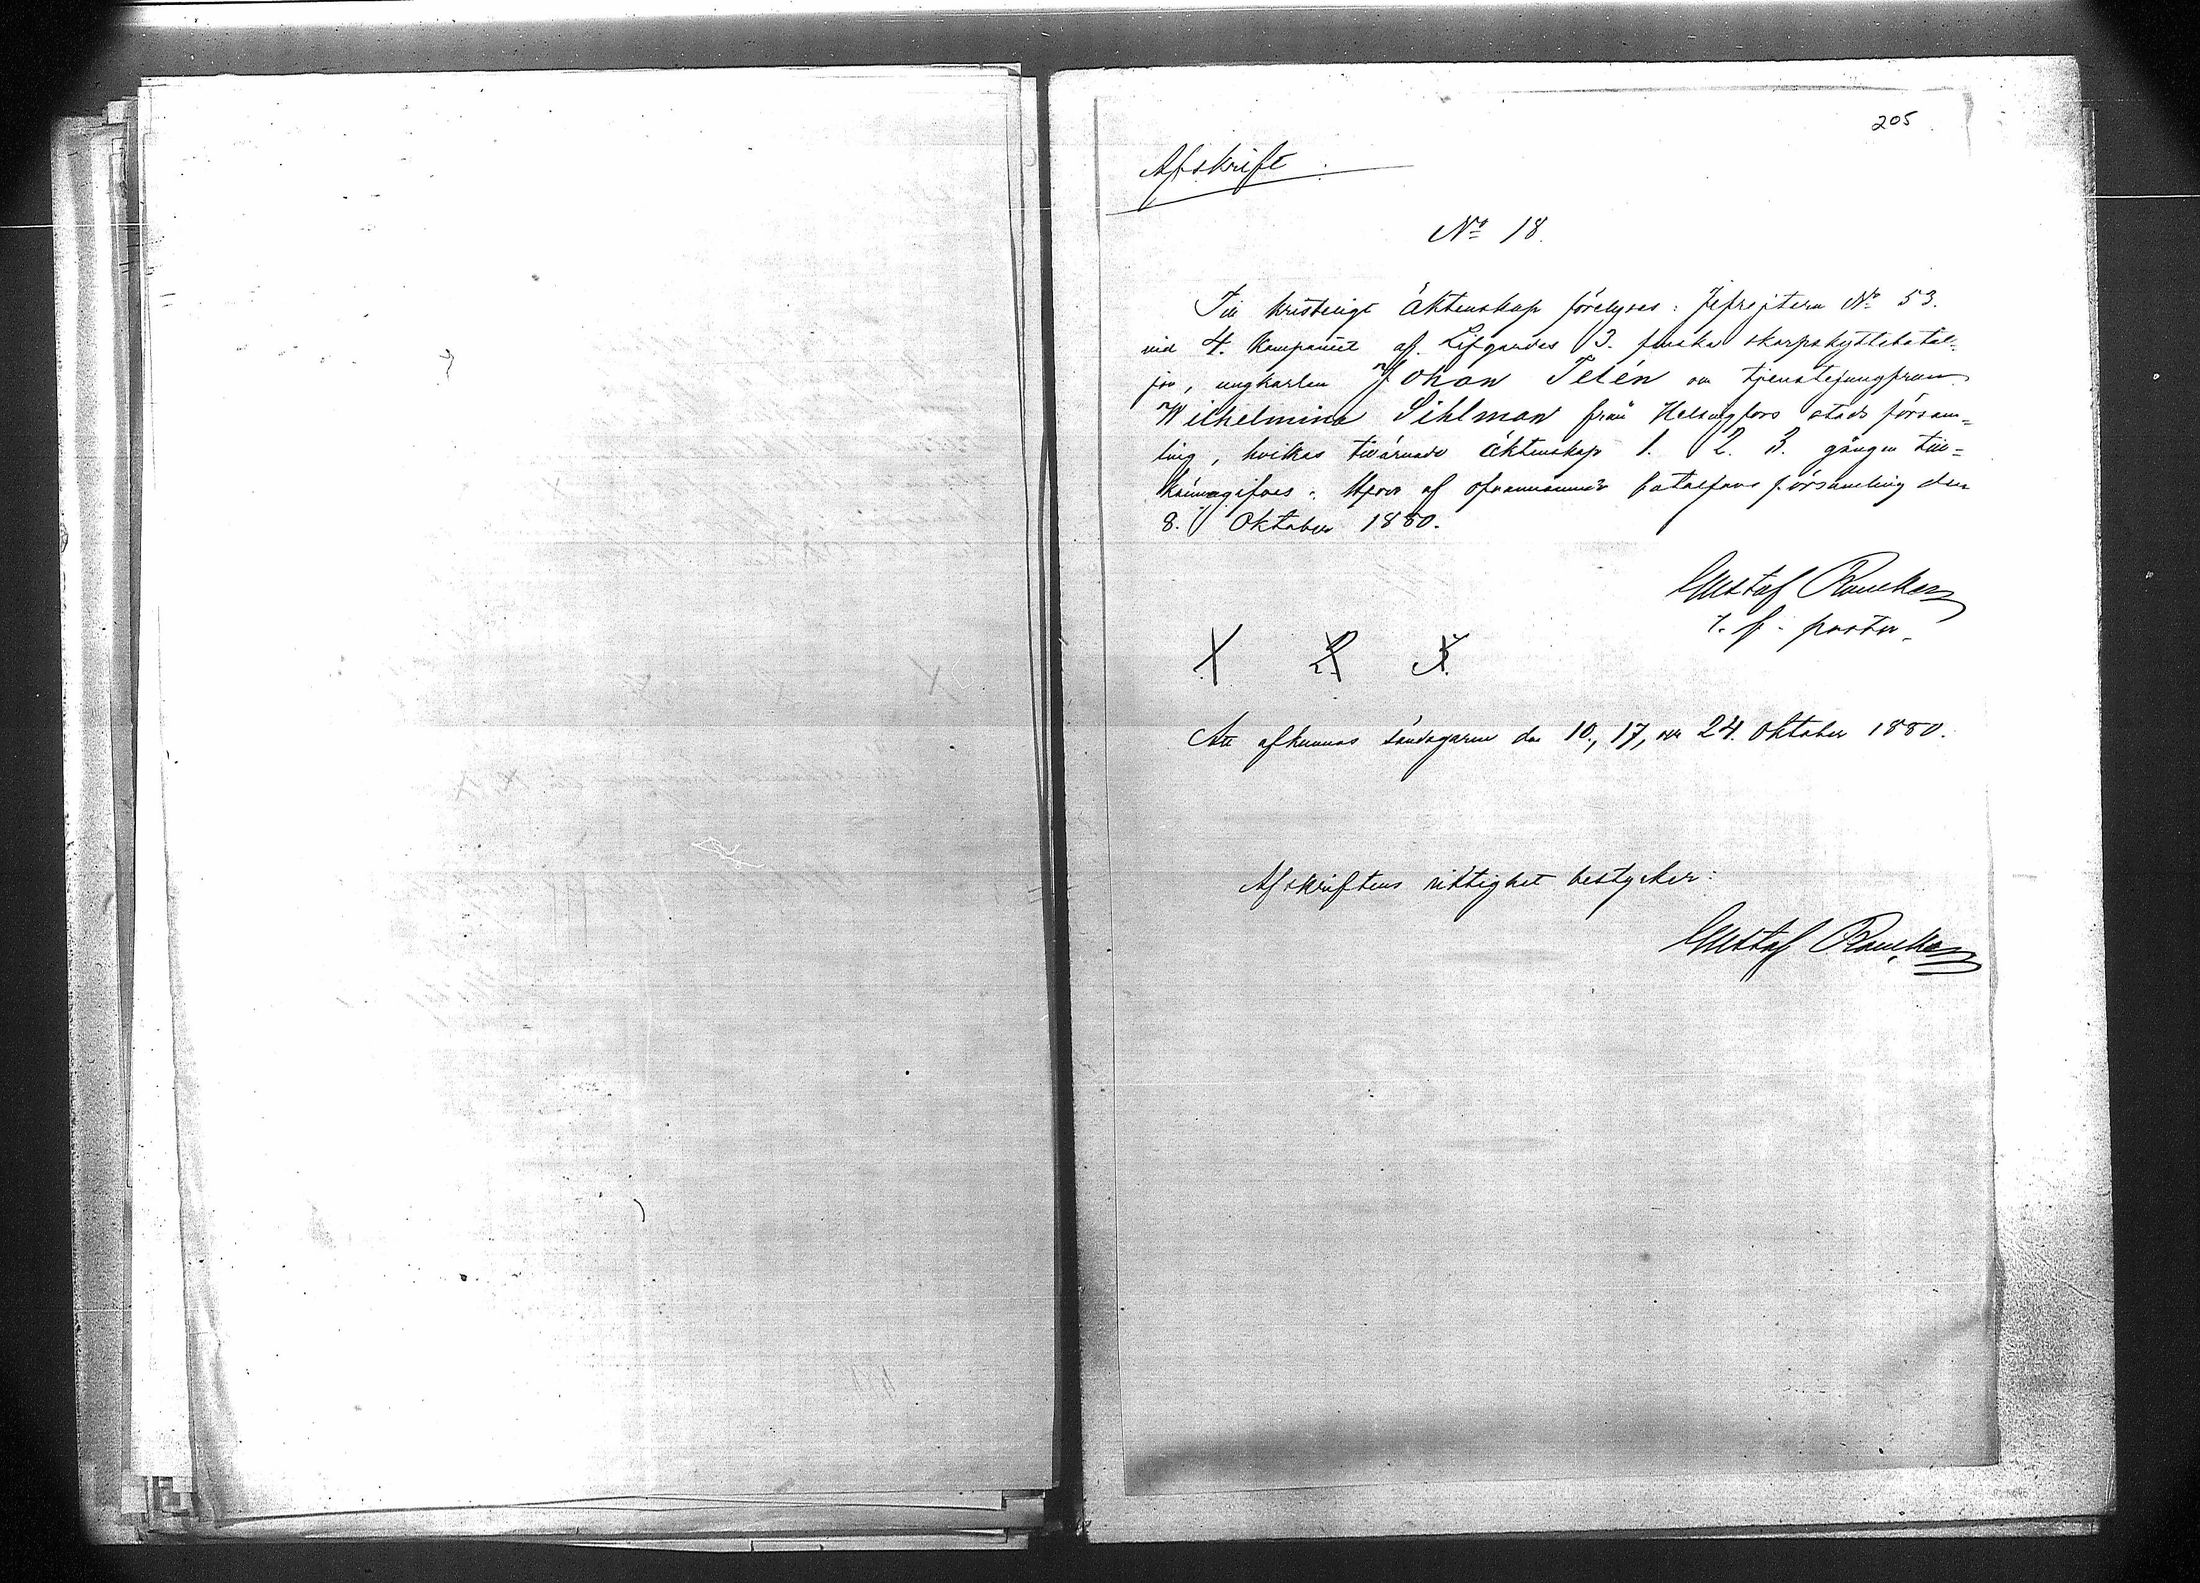 205
Afskrift.
No 18.
Till kristeligt äktenskap förelyses: Jefrejtern No 53.
vid 4. Kompaniet af Lifgardes 3. finska skarpskyttebatal-
jon, ungkarlen Johan Telén och tjenstejungfrun
Wilhelmina Sihlman från Helsingfors stads försam-
ling, hvilkas tillärnade äktenskap 1. 2. 3. gången till-
kännagifves. Åbo af ofvannämnde bataljons församling den
8. Oktober 1880.
Gustaf Rancken
t. f. pastor.
1. 2. 3.
Att afkunnas söndagarne den 10., 17, och 24. Oktober 1880.
Afskriftens riktighet bestyrker:
Gustaf Rancken